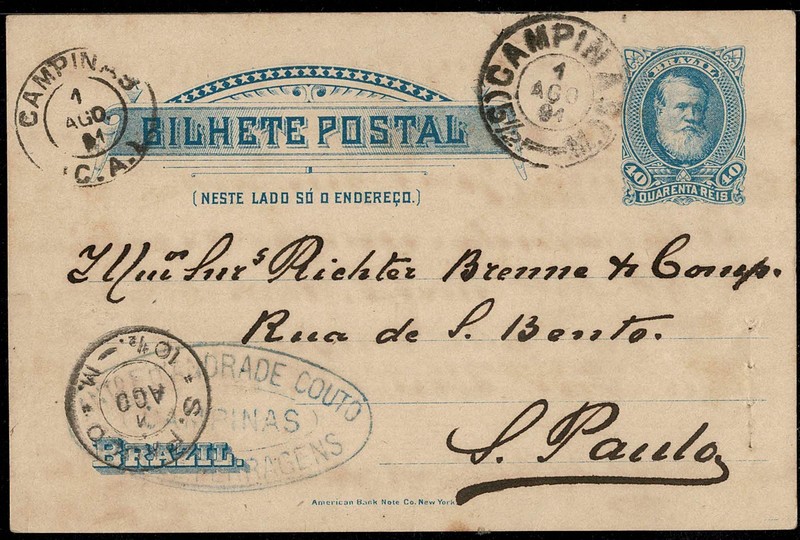 CAMPINAS
1
AGO
91
(C.A.)
CAMPINAS
1
AGO
91
BRAZIL
40 40
QUARENTA RÉIS
BILHETE POSTAL
(NESTE LADO SÓ O ENDEREÇO.)
Illmos Snrs Richter Brenne & Comp.
Rua de S. Bento.
S. Paulo
10 ½. M.
AGO
DRADE COUTO
PINAS)
RAGENS
BRAZIL.
American Bank Note Co. New York